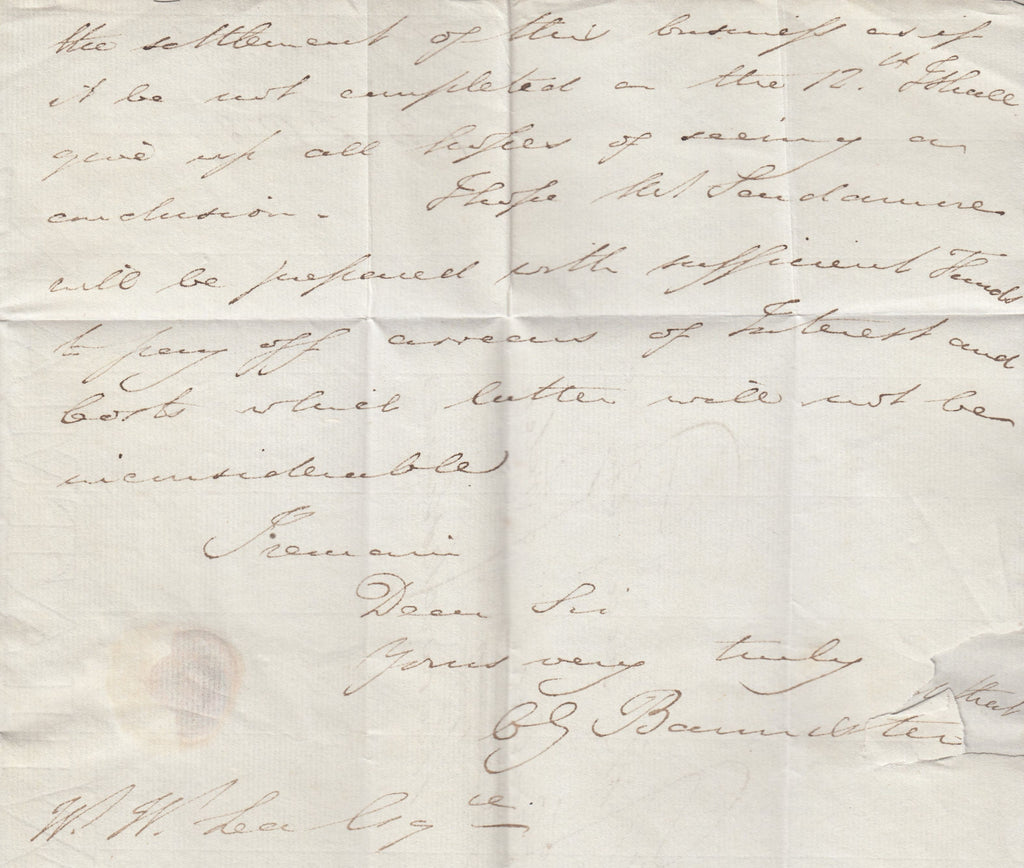 the settlement of this business as if
it be not completed on the 12.th I Shall
give up all hopes of seeing a
conclusion. I hope Mr Sendamore
will be prepared with sufficient Funds
to pay off arrears of Interest and
Costs which latter will not be
inconsiderable
I remain
Dear Sir
Yours very truly
Bannister
that
W. W. Lea Esqre